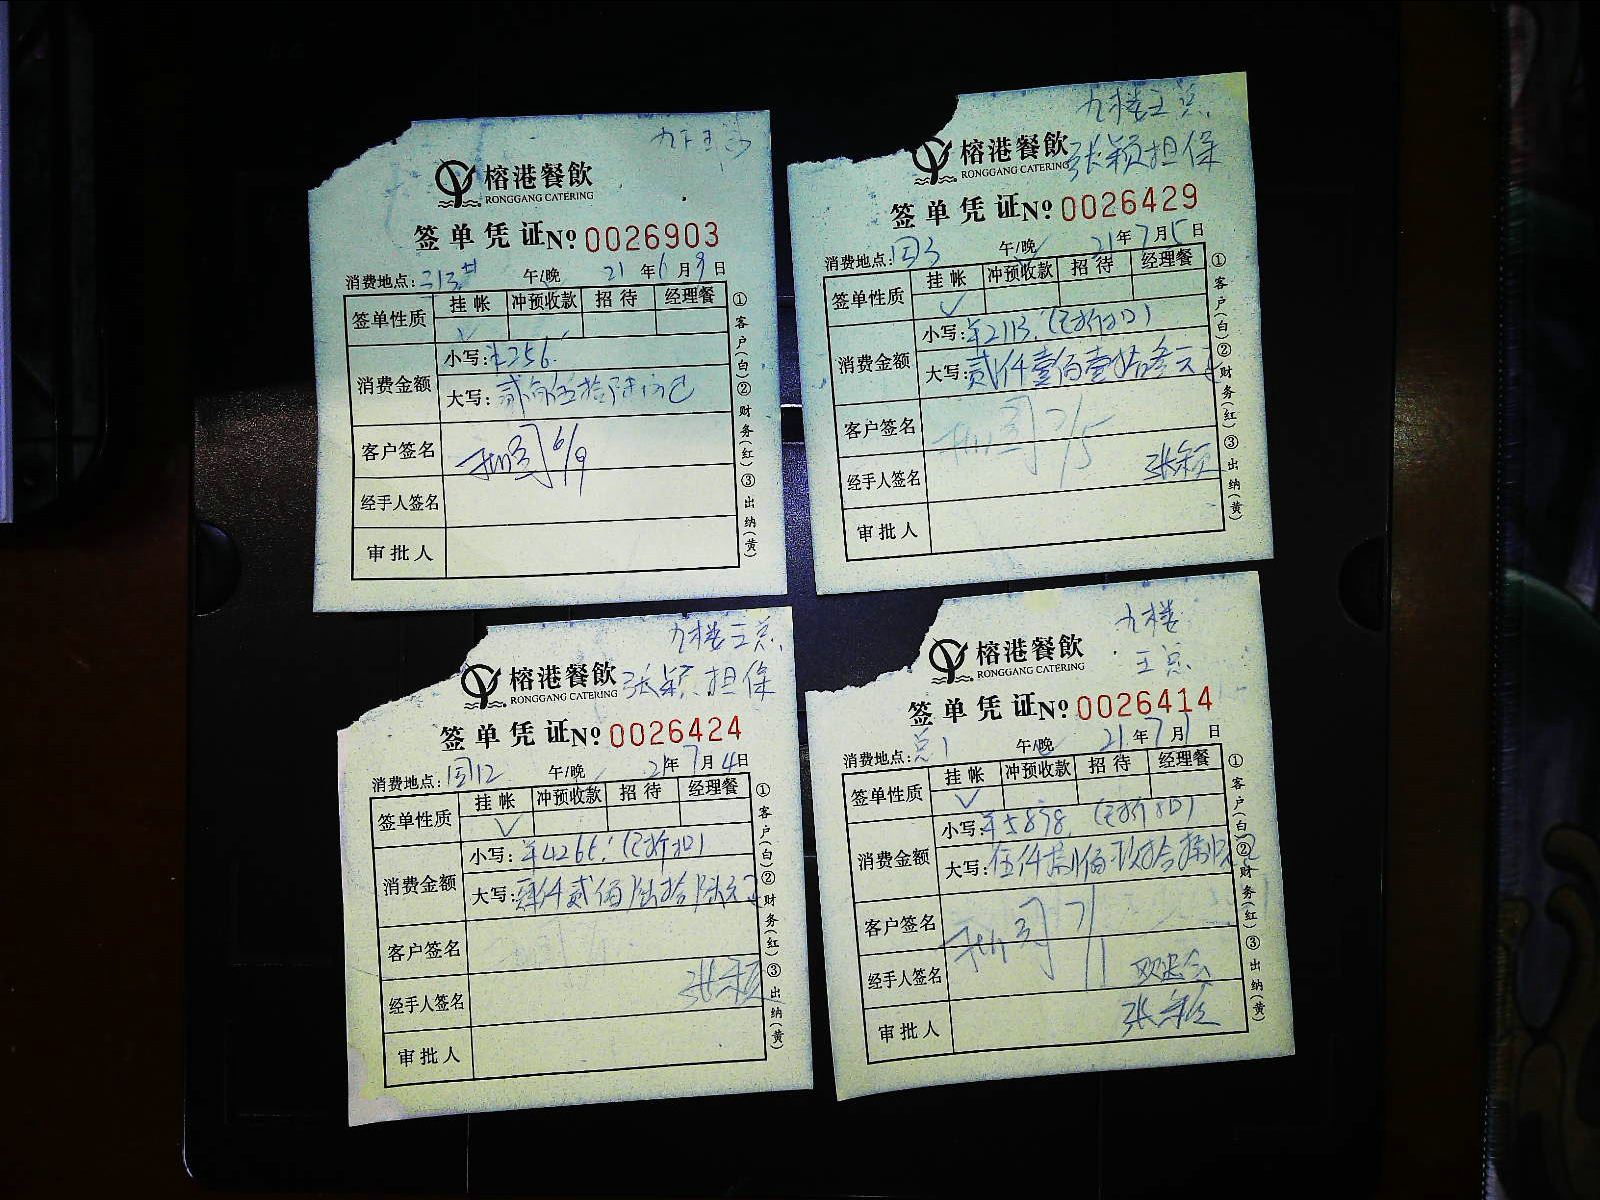 榕港餐飲
RONGGANG CATERING
签单凭证 No 0026903
消费地点: 午/晚 21年6月9日
签单性质 挂帐 冲预收款 招待 经理餐
✓
消费金额 小写: ¥256.
大写: 贰佰伍拾陆元
客户签名 6/9
经手人签名
审批人
①客户(白)②财务(红)③出纳(黄)
九楼王总
张颖担保
榕港餐飲
RONGGANG CATERING
签单凭证 No 0026429
消费地点: 午/晚 21年7月5日
签单性质 挂帐 冲预收款 招待 经理餐
✓
消费金额 小写: ¥2113.(已折扣)
大写: 贰仟壹佰壹拾叁元
客户签名 7/5
经手人签名 张颖
审批人
①客户(白)②财务(红)③出纳(黄)
九楼王总
张颖担保
榕港餐飲
RONGGANG CATERING
签单凭证 No 0026424
消费地点: 午/晚 21年7月4日
签单性质 挂帐 冲预收款 招待 经理餐
✓
消费金额 小写: ¥4266.(已折扣)
大写: 肆仟贰佰陆拾陆元
客户签名
经手人签名 张颖
审批人
①客户(白)②财务(红)③出纳(黄)
九楼
王总
榕港餐飲
RONGGANG CATERING
签单凭证 No 0026414
消费地点: 总1 午/晚 21年7月1日
签单性质 挂帐 冲预收款 招待 经理餐
✓
消费金额 小写: ¥5898.(已折扣)
大写: 伍仟捌佰玖拾捌元
客户签名 7/1
经手人签名
审批人 张颖
①客户(白)②财务(红)③出纳(黄)